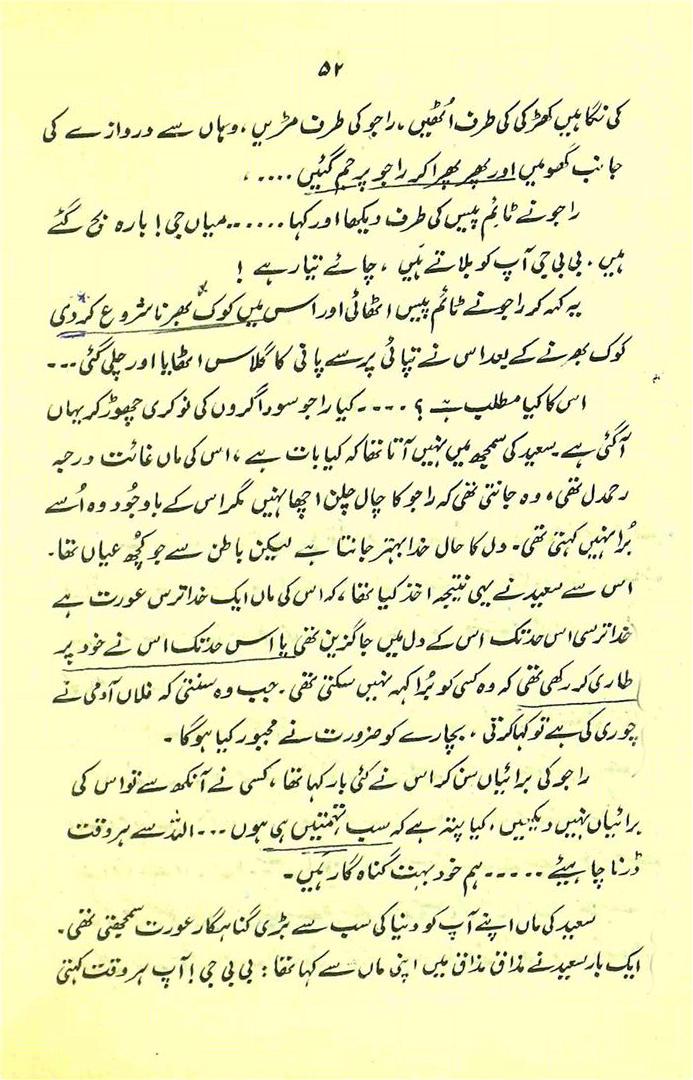 ۵۲
کی نگاہیں کھڑکی کی طرف اٹھیں، راجو کی طرف مڑیں، وہاں سے دروازے کی
جانب گھومیں اور پھر پھرا کر راجو پر جم گئیں ....
راجو نے ٹائم پیس کی طرف دیکھا اور کہا ...... میاں جی! بارہ بج گئے
ہیں۔ بی بی جی آپ کو بلاتے ہیں، چائے تیار ہے!
یہ کہہ کر راجو نے ٹائم پیس اٹھائی اور اس میں کوک بھرنا شروع کر دی
کوک بھرنے کے بعد اس نے تپائی پر سے پانی کا گلاس اٹھایا اور چلی گئی ...
اس کا کیا مطلب ہے؟ .... کیا راجو سوداگروں کی نوکری چھوڑ کر یہاں
آ گئی ہے سعید کی سمجھ میں نہیں آتا تھا کہ کیا بات ہے، اس کی ماں غائت درجہ
رحمدل تھی، وہ جانتی تھی کہ راجو کا چال چلن اچھا نہیں مگر اس کے باوجود وہ اُسے
بُرا نہیں کہتی تھی۔ دل کا حال خدا بہتر جانتا ہے لیکن باطن سے جو کچھ عیاں تھا۔
اس سے سعید نے یہی نتیجہ اخذ کیا تھا، کہ اس کی ماں ایک خدا ترس عورت ہے
خدا ترسی اس حد تک اس کے دل میں جاگزین تھی یا اس حد تک اس نے خود پر
طاری کر رکھی تھی کہ وہ کسی کو بُرا کہہ نہیں سکتی تھی۔ جب وہ سنتی کہ فلاں آدمی نے
چوری کی ہے تو کہا کرتی، بچارے کو ضرورت نے مجبور کیا ہوگا۔
راجو کی برائیاں سن کر اس نے کئی بار کہا تھا، کسی نے آنکھ سے تو اس کی
برائیاں نہیں دیکھیں، کیا پتہ ہے کہ سب تہمتیں ہی ہوں ... اللہ سے ہر وقت
ڈرنا چاہیئے ..... ہم خود بہت گناہ گار ہیں۔
سعید کی ماں اپنے آپ کو دنیا کی سب سے بڑی گناہگار عورت سمجھتی تھی۔
ایک بار سعید نے مذاق مذاق میں اپنی ماں سے کہا تھا: بی بی جی! آپ ہر وقت کہتی